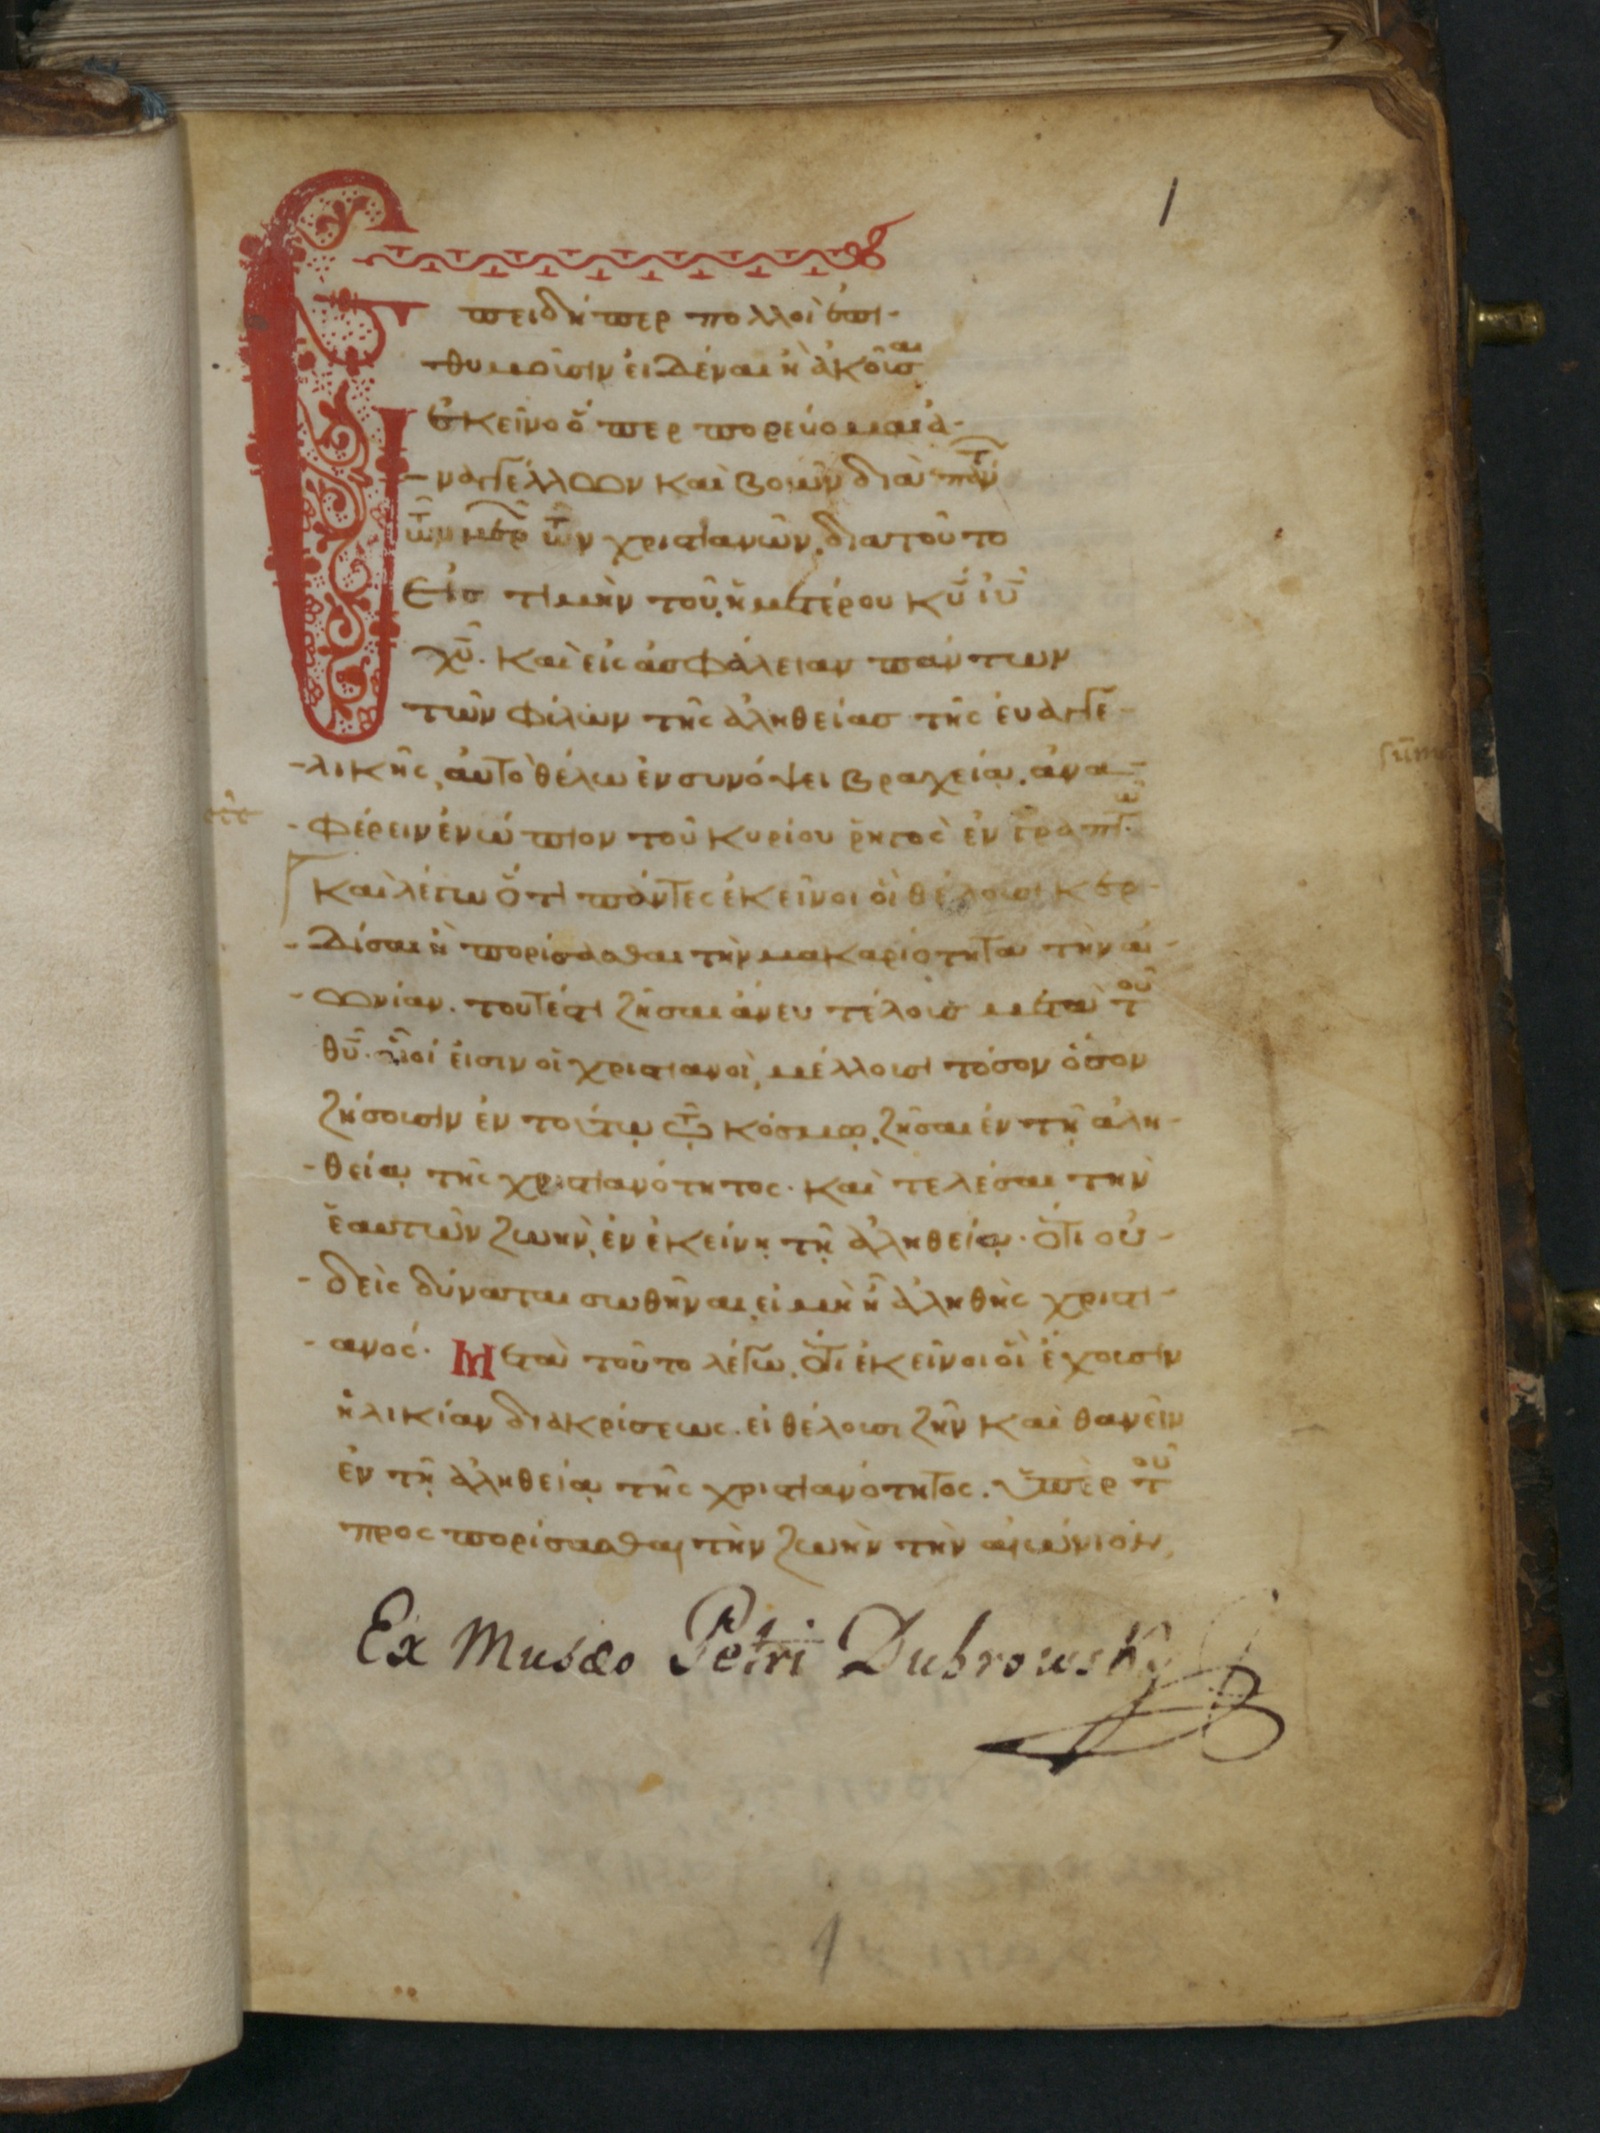 1
Ἐπειδήπερ πολλοὶ ἐπι-
θυμοῦσιν εἰδέναι κ ἀκοῦσαι
ἐκεῖνο ὅπερ πορεύομαι ἀ-
ναγγέλλων καὶ βοῶν διὰ
χριστιανῶν, διατοῦτο
Εἰς τιμὴν τοῦ ἡμετέρου κῦ ἰῦ
χῦ. καὶ εἰς ἀσφάλειαν πάντων
τῶν φίλων τῆς ἀληθείας τῆς ἐυαγγε-
-λικῆς, αὐτὸ θέλω ἐν συνόψει βραχεία. ἀνα-
-φέρειν ἐνώπιον τοῦ κυρίου ῥητὸς ἐν
Καὶ λέγω ὅτι πάντες ἐκεῖνοι οἳ θέλουσι κερ-
-δίσαι κ πορίσασθαι τὴν μακαριότητα τὴν αἰ-
-ωνίαν. τουτέστι ζῆσαι ἄνευ τέλους μετὰ τοῦ
θῦ. εἰσιν οἱ χριστιανοὶ, μέλλουσι τόσον ὅσον
ζήσουσιν ἐν τούτῳ τῷ κόσμῳ, ζῆσαι ἐν τῇ ἀλη-
-θείᾳ τῆς χριστιανότητος. καὶ τελέσαι τὴν
ἑαυτῶν ζωὴν, ἐν ἐκείνῃ τῇ ἀληθείᾳ. ὅτι οὐ-
-δεὶς δύναται σωθῆναι, εἰ μὴ ᾖ ἀληθὴς χριστι-
-ανός. Μετὰ τοῦτο λέγω, ὅτι ἐκεῖνοι οἳ ἔχουσιν
ἡλικίαν διακρίσεως. εἰ θέλουσι ζῆν καὶ θανεῖν
ἐν τῇ ἀληθείᾳ τῆς χριστιανότητος. ὑπὲρ τοῦ
προς πορίσασθαι τὴν ζωὴν τὴν αἰώνιον,
Ex Musæo Petri Dubrowsky
1